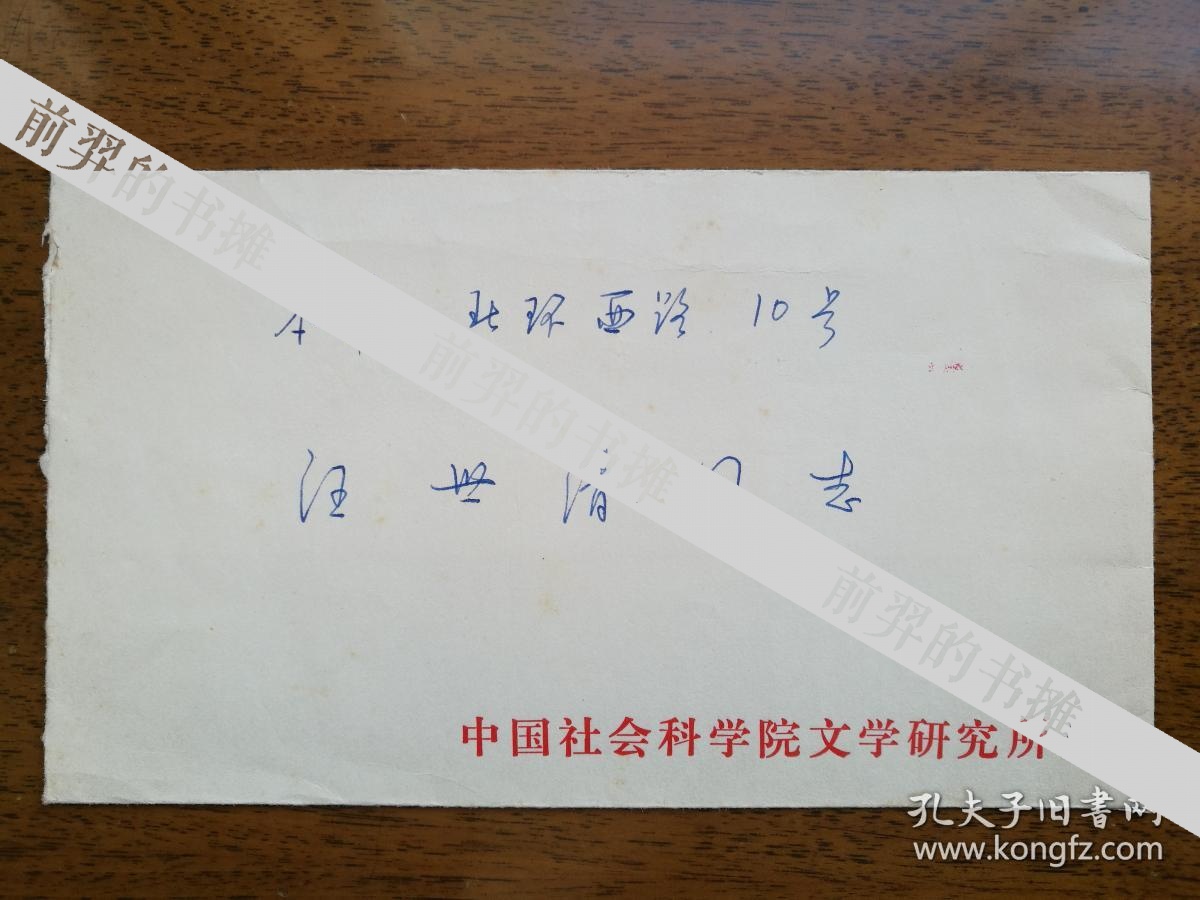 前羿的书摊
北环西路 10号
前羿的书摊
汪世清同志
前羿的书摊
中国社会科学院文学研究所
孔夫子旧书网
www.kongfz.com